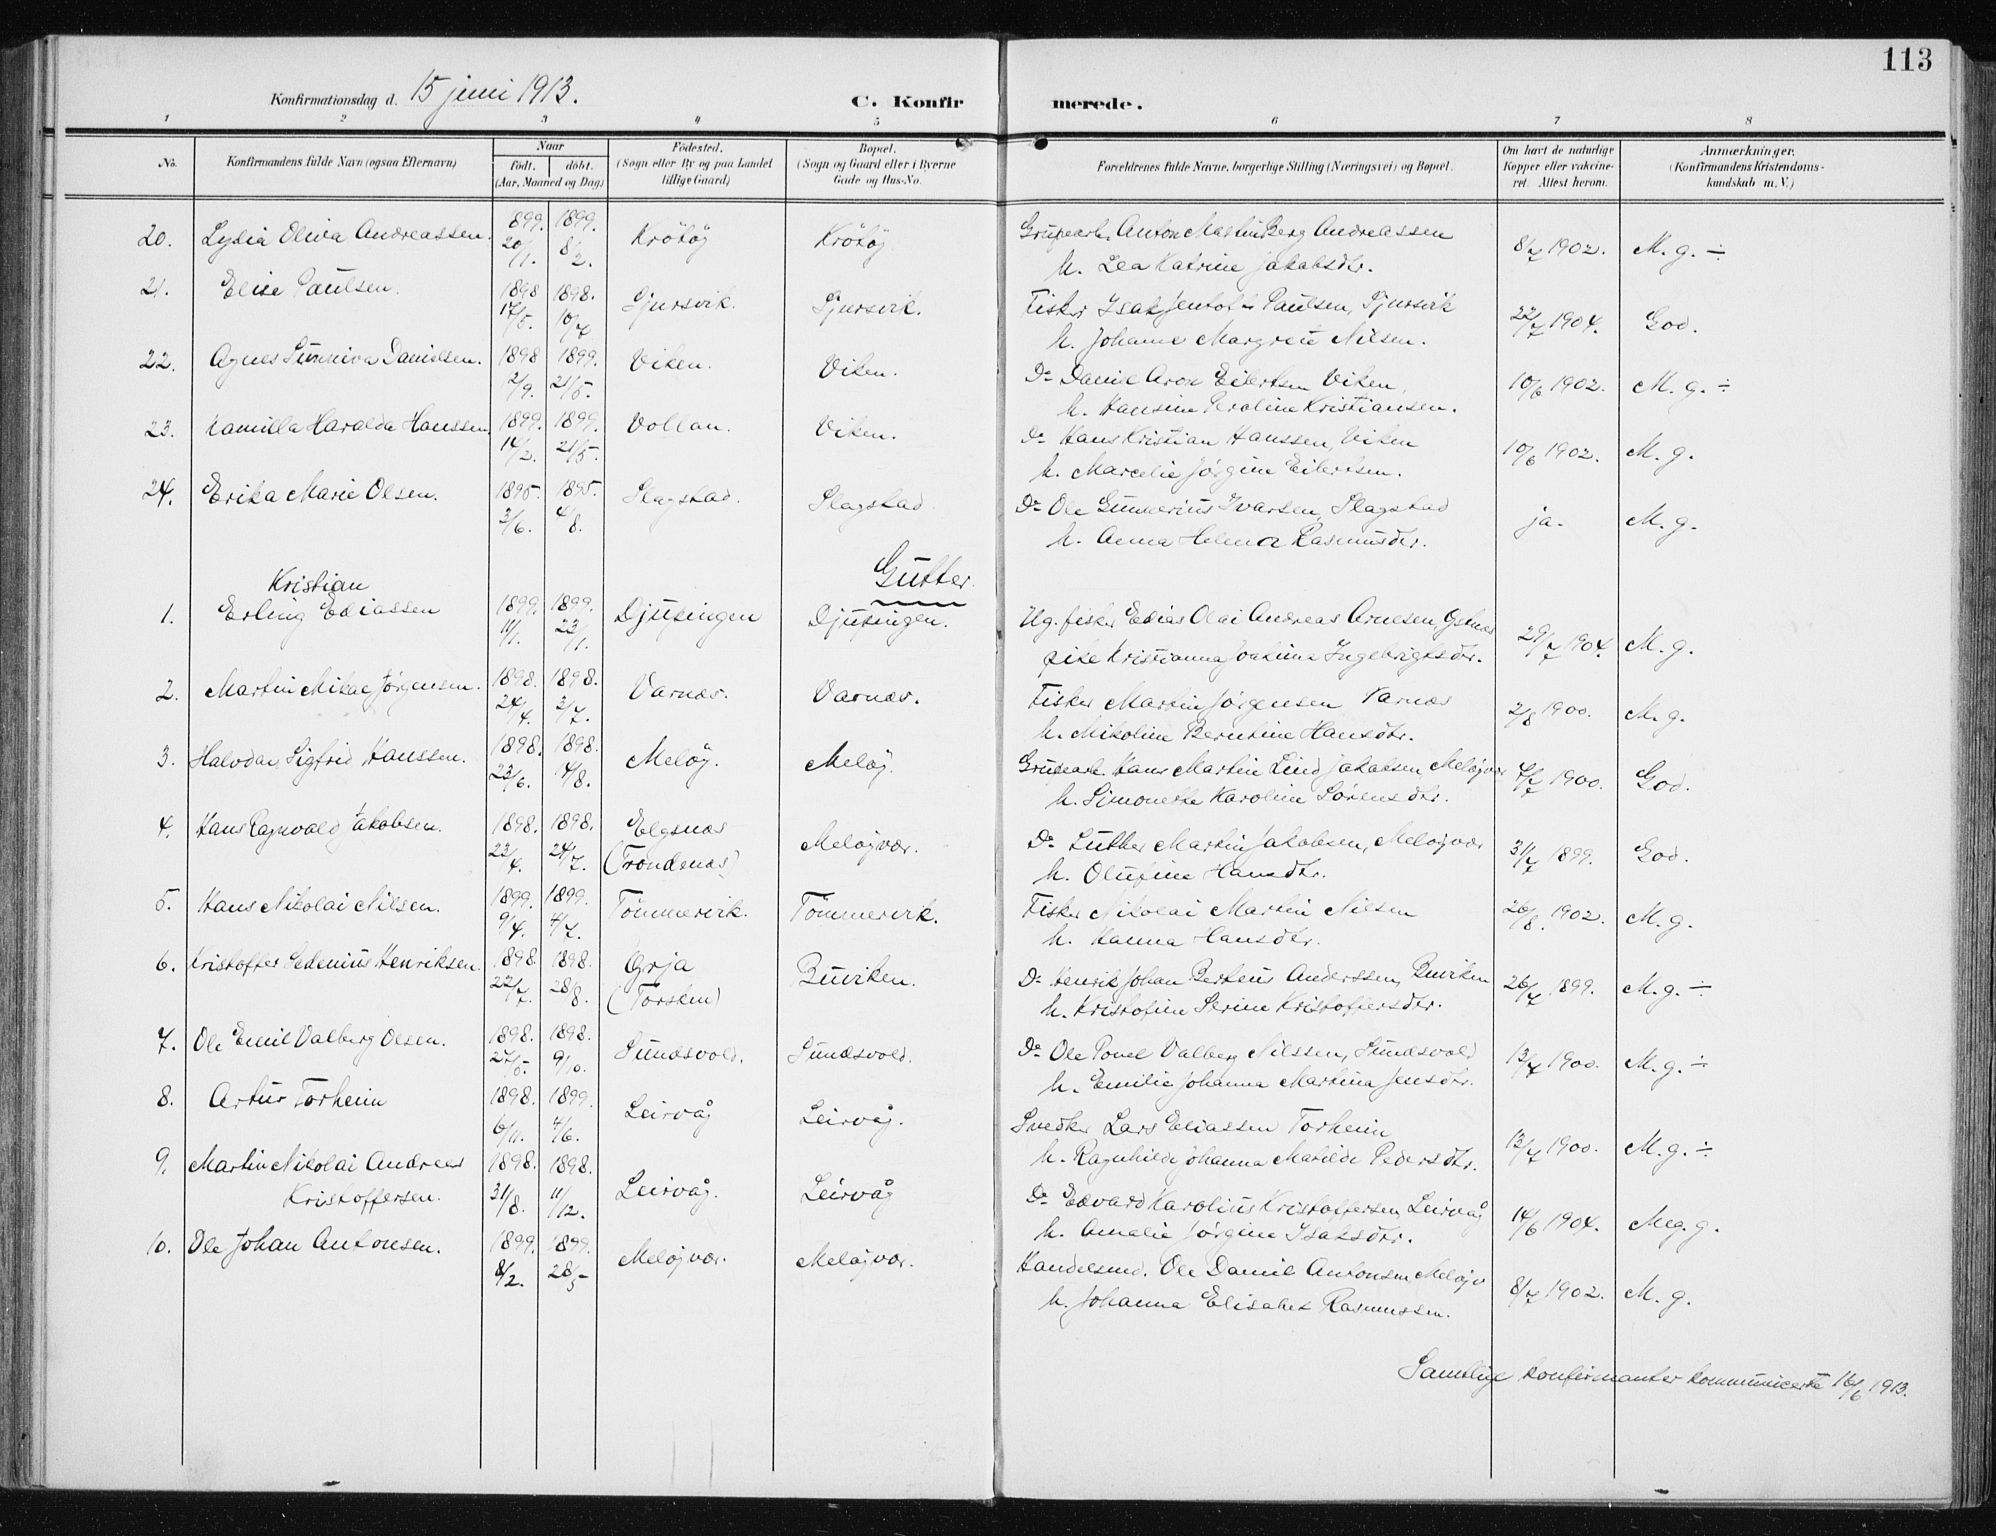 113
Konfirmationsdag d. 15 juni 1913.
C. Konfirmerede.
1 2 3 4 5 6 7 8
No. Konfirmandens fulde Navn (ogsaa Efternavn) Naar født. døbt. (Aar, Maaned og Dag) Fødested. (Sogn eller By og paa Landet tillige Gaard) Bopæl. (Sogn og Gaard eller i Byerne Gade og Hus-No. Forældrenes fulde Navne, borgerlige Stilling (Næringsvei) og Bopæl. Om havt de naturlige Kopper eller vakcineret. Attest herom. Anmærkninger. (Konfirmandens Kristendomskundskab m. V.)
20. Lydia Oliva Andreassen. 1899. 20/1. 1899. 8/2. Krötöj Krötöj. Grubearb. Anton Martin Berg Andreassen 8/7 1902. M. g. ÷
h. Lea Katrine Jakobsdtr.
21. Elise Paulsen. 1898 17/5. 1898. 10/7 Sjursvik. Sjursvik. Fisker Isak Jentoft Paulsen, Sjursvik 22/7 1904. God.
h. Johanne Margrete Nilsen.
22. Agnes Sunniva Danielsen. 1898 2/9. 1899. 21/5. Viken. Viken. Do Daniel Aron Eilertsen Viken, 10/6 1902. M. g. ÷
h. Hansine Peroline Kristiansen.
23. Kamilla Haralda Hanssen. 1899. 14/2. 1899. 21/5. Vollan. Viken. Do Hans Kristian Hanssen, Viken 10/6 1902. M. g.
h. Marcelie Jørgine Eilertsen.
24. Erika Marie Olsen. 1895. 3/6. 1895. 4/8. Slagstad. Slagstad. Do Ole Gunnerius Ivarsen, Slagstad ja. M. g.
h. Anna Helma Rasmusdtr.
Gutter.
1. Kristian Erling Ediassen 1899. 11/1. 1899. 23/1. Djupingen Djupingen. Ug. fisker Edias Olai Andreas Arnesen, 29/7 1904. M. g.
pike Kristianna Joakima Ingebrigtsdtr.
2. Martin Mikal Jørgensen. 1898. 24/4. 1898. 3/7. Varnæs. Varnæs. Fisker Martin Jørgensen Varnæs 2/8 1900. M. g.
h. Nikoline Berntine Hansdtr.
3. Halvdan Sigfrid Hanssen. 1898. 23/6. 1898. 14/8. Meløj. Meløj. Grubearb. Hans Martin Lind Jakobsen, Meløjvær 4/7 1900. God.
h. Simonette Karoline Sørensdtr.
4. Hans Ragnvald Jakobsen. 1898. 23/4. 1898. 24/7. Elgsnæs (Trondenæs) Meløjvær. Do Luther Martin Jakobsen, Meløjvær 31/7 1899. God.
h. Olufine Hansdtr.
5. Hans Nikolai Nilsen. 1899. 9/4. 1899. 4/7. Tömmervik. Tömmervik. Fisker Nikolai Martin Nilsen 26/8. 1902. M. g.
h. Hanna Hansdtr.
6. Kristoffer Sedenius Henriksen. 1898. 22/7. 1898. 28/8. Grja (Torsken) Buviken. Do Henrik Johan Berteus Anderssen, Buviken 26/7 1899. M. g. ÷
h. Kristofine Serine Kristoffersdtr.
7. Ole Emil Valberg Olsen. 1898. 27/5. 1898. 9/10. Sundsvold. Sundsvold. Do Ole Povel Valberg Nilssen, Sundsvold 13/7 1900. M. g. ÷
h. Emilie Johanna Martina Jensdtr.
8. Artur Torheim 1898. 6/11. 1899. 4/6. Leirvåg Leirvåg. Svedker Lars Eliassen Torheim 13/7 1900. M. g. ÷
h. Ragnhilde Johanna Matilde Pedersdtr.
9. Martin Nikolai Andreas Kristoffersen. 1898. 31/8. 1898. 11/12. Leirvåg. Leirvåg Do Edvard Karolius Kristoffersen Leirvåg 14/6 1904. Meg. g.
h. Amalie Jørgine Isaksdtr.
10. Ole Johan Antonsen. 1899. 8/2. 1899. 28/5 Meløjvær. Meløjvær. Handelsmd. Ole Daniel Antonsen Meløjv 8/7 1902. M. g.
h. Johanna Elisabet Rasmussen.
Samtlige konfirmanter kommunicerte 16/6 1913.